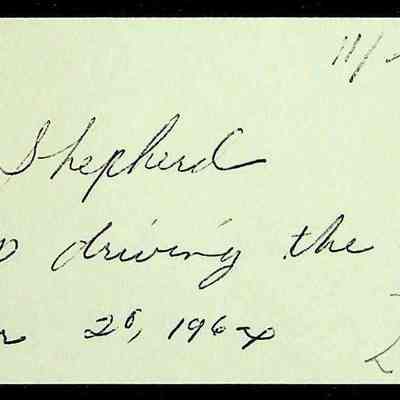 11/
Shepherd
driving the
20, 1964